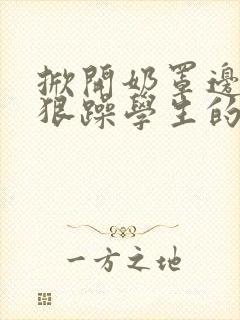 掀開奶罩邊
狠躁學生的
一方之地